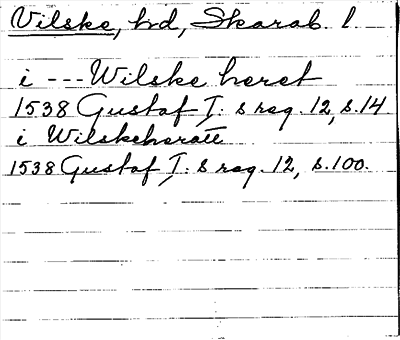 Vilske, hd, Skarab. l.
i --- Wilske heret
1538 Gustaf I: s reg. 12, s. 14
i Wilskeheratt
1538 Gustaf I: s reg. 12, s. 100.